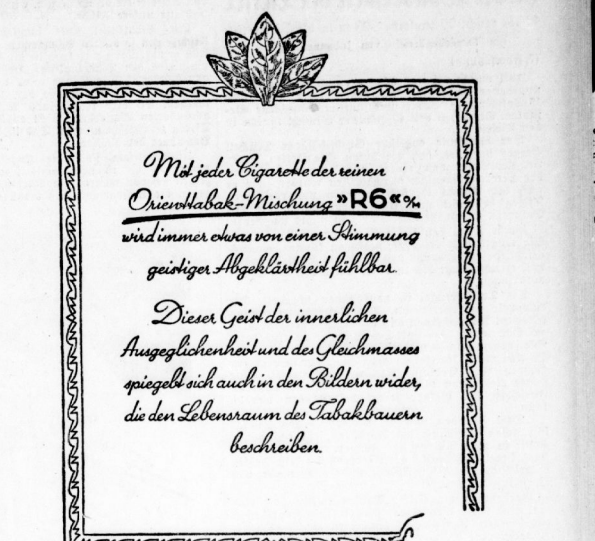 Mit jeder Cigarette der reinen
Orienttabak-Mischung »R6« o/m
wird immer etwas von einer Stimmung
geistiger Abgeklärtheit fühlbar.
Dieser Geist der innerlichen
Ausgeglichenheit und des Gleichmasses
spiegelt sich auch in den Bildern wider,
die den Lebensraum des Tabakbauern
beschreiben.